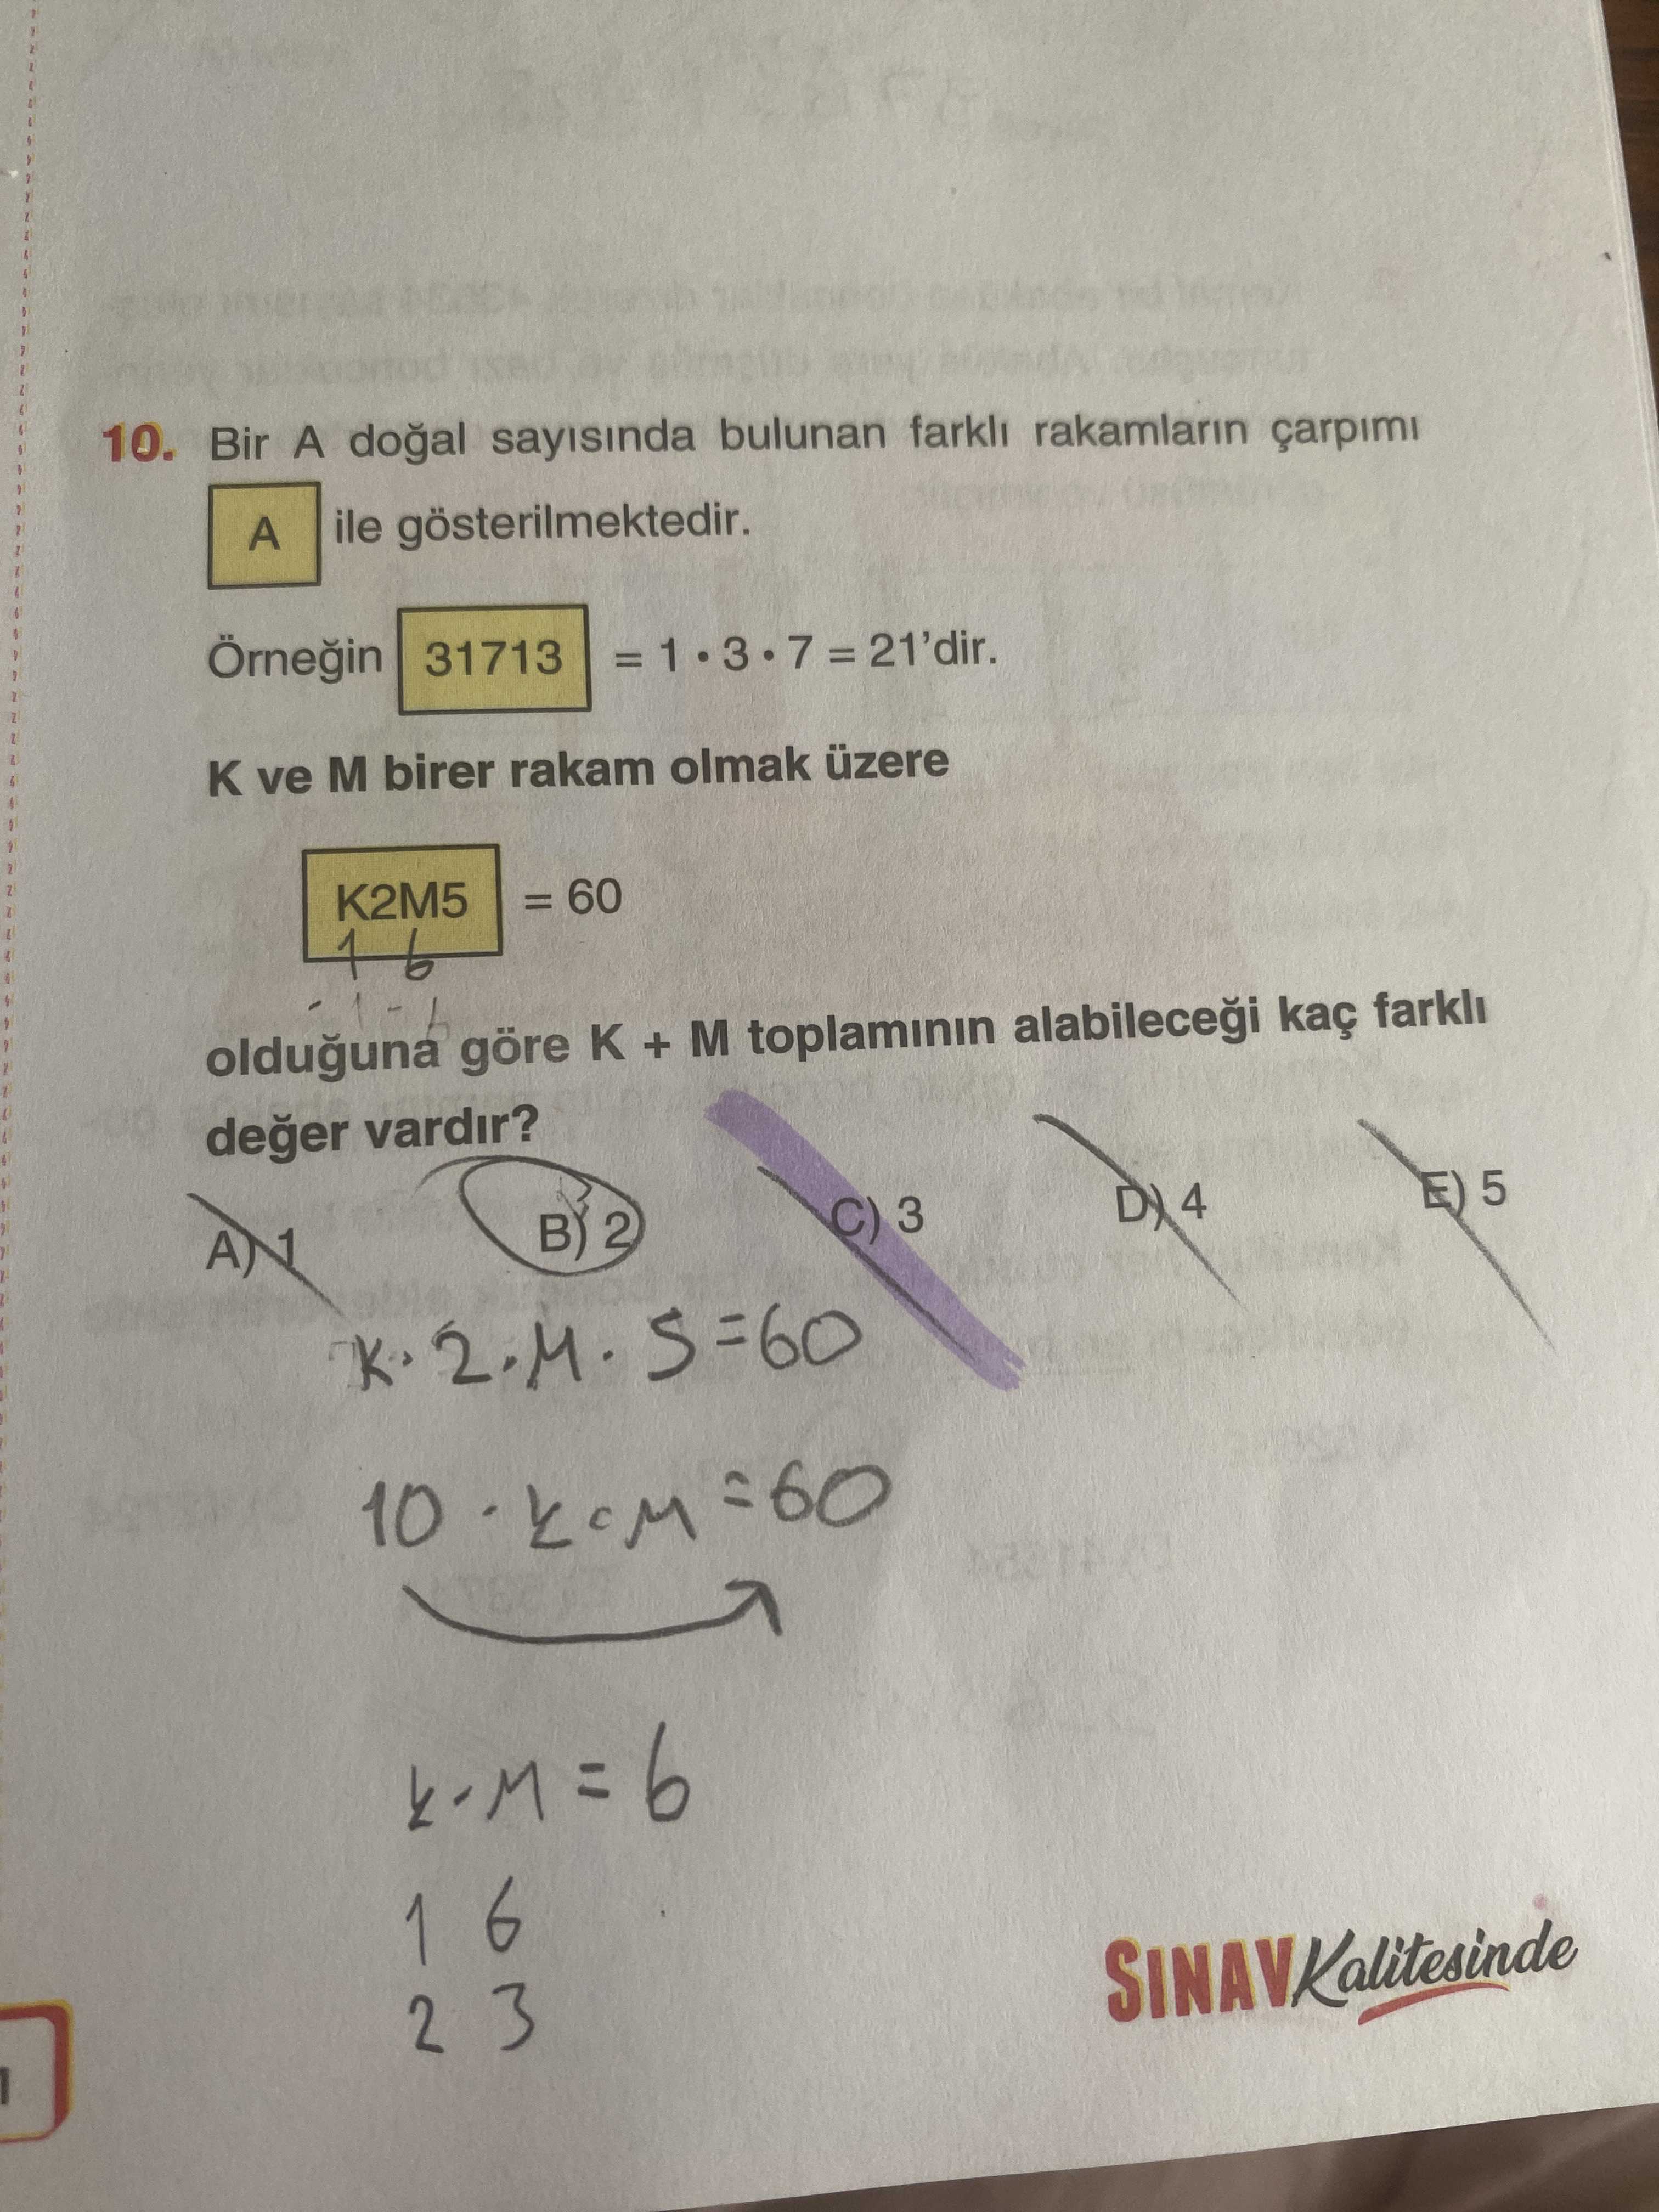 10. Bir A doğal sayısında bulunan farklı rakamların çarpımı
A ile gösterilmektedir.
Örneğin 31713 = 1 • 3 • 7 = 21'dir.
K ve M birer rakam olmak üzere
K2M5 = 60
1 6
olduğuna göre K + M toplamının alabileceği kaç farklı
değer vardır?
A) 1 B) 2 C) 3 D) 4 E) 5
K · 2 · M · 5 = 60
10 · K · M = 60
K · M = 6
1 6
2 3
SINAV Kalitesinde